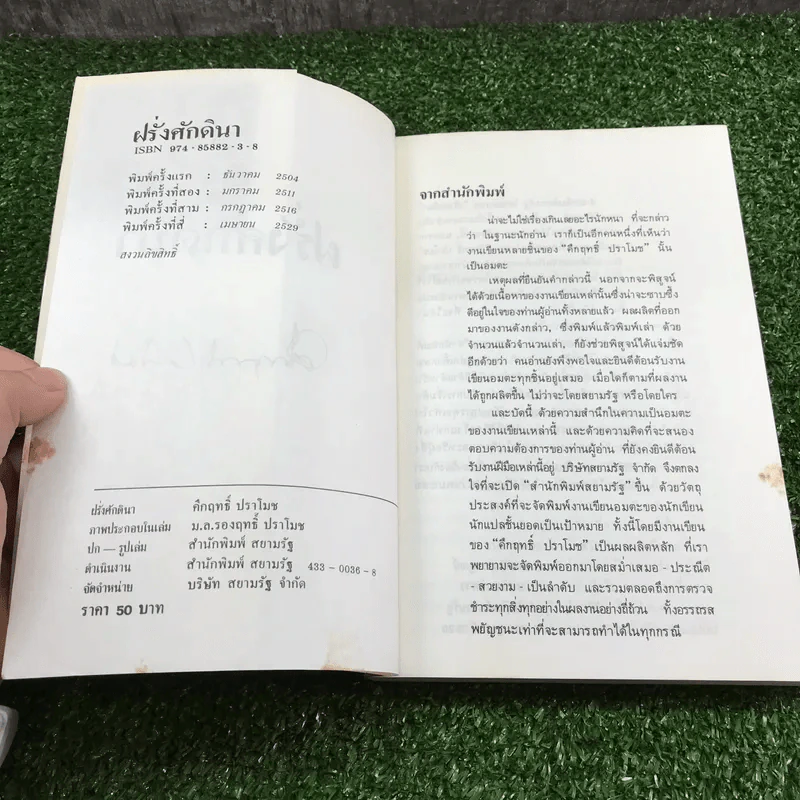 ฝรั่งศักดินา
ISBN 974-85882-3-8
พิมพ์ครั้งแรก : ธันวาคม 2504
พิมพ์ครั้งที่สอง : มกราคม 2511
พิมพ์ครั้งที่สาม : กรกฎาคม 2516
พิมพ์ครั้งที่สี่ : เมษายน 2529
สงวนลิขสิทธิ์
ฝรั่งศักดินา คึกฤทธิ์ ปราโมช
ภาพประกอบในเล่ม ม.ล.รองฤทธิ์ ปราโมช
ปก — รูปเล่ม สำนักพิมพ์ สยามรัฐ
ดำเนินงาน สำนักพิมพ์ สยามรัฐ 433-0036-8
จัดจำหน่าย บริษัท สยามรัฐ จำกัด
ราคา 50 บาท
จากสำนักพิมพ์
น่าจะไม่ใช่เรื่องเกินเลยอะไรนักหนา ที่จะกล่าว
ว่า ในฐานะนักอ่าน เราก็เป็นอีกคนหนึ่งที่เห็นว่า
งานเขียนหลายชิ้นของ "คึกฤทธิ์ ปราโมช" นั้น
เป็นอมตะ
เหตุผลที่ยืนยันคำกล่าวนี้ นอกจากจะพิสูจน์
ได้ด้วยเนื้อหาของงานเขียนเหล่านั้นซึ่งน่าจะซาบซึ้ง
ดีอยู่ในใจของท่านผู้อ่านทั้งหลายแล้ว ผลผลิตที่ออก
มาของงานดังกล่าว, ซึ่งพิมพ์แล้วพิมพ์เล่า ด้วย
จำนวนแล้วจำนวนเล่า, ก็ยังช่วยพิสูจน์ได้แจ่มชัด
อีกด้วยว่า คนอ่านยังพึงพอใจและยินดีต้อนรับงาน
เขียนอมตะทุกชิ้นอยู่เสมอ เมื่อใดก็ตามที่ผลงาน
ได้ถูกผลิตขึ้น ไม่ว่าจะโดยสยามรัฐ หรือโดยใคร
และบัดนี้ ด้วยความสำนึกในความเป็นอมตะ
ของงานเขียนเหล่านี้ และด้วยความคิดที่จะสนอง
ตอบความต้องการของท่านผู้อ่าน ที่ยังคงยินดีต้อน
รับงานฝีมือเหล่านี้อยู่ บริษัทสยามรัฐ จำกัด จึงตกลง
ใจที่จะเปิด "สำนักพิมพ์สยามรัฐ" ขึ้น ด้วยวัตถุ
ประสงค์ที่จะจัดพิมพ์งานเขียนอมตะของนักเขียน
นักแปลชั้นยอดเป็นเป้าหมาย ทั้งนี้โดยมีงานเขียน
ของ "คึกฤทธิ์ ปราโมช" เป็นผลผลิตหลัก ที่เรา
พยายามจะจัดพิมพ์ออกมาโดยสม่ำเสมอ - ประณีต
- สวยงาม - เป็นลำดับ และรวมตลอดถึงการตรวจ
ชำระทุกสิ่งทุกอย่างในผลงานอย่างถี่ถ้วน ทั้งอรรถรส
พยัญชนะเท่าที่จะสามารถทำได้ในทุกกรณี